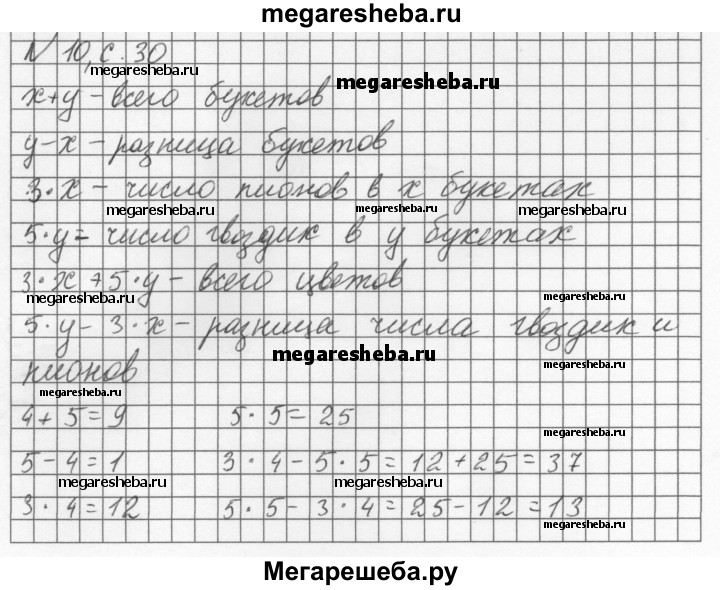 megaresheba.ru
N 10, с. 30
megaresheba.ru
x+y – всего букетов
megaresheba.ru
y-x – разница букетов
3·x – число пионов в x букетах
megaresheba.ru megaresheba.ru megaresheba.ru
5·y = число гвоздик в y букетах
3·x + 5·y – всего цветов
megaresheba.ru megaresheba.ru
5·y – 3·x – разница числа гвоздик и
megaresheba.ru
пионов
megaresheba.ru
megaresheba.ru
4+5=9 5·5=25
megaresheba.ru
5-4=1 3·4-5·5=12+25=37
megaresheba.ru megaresheba.ru
3·4=12 5·5-3·4=25-12=13
megaresheba.ru
Мегарешеба.ру